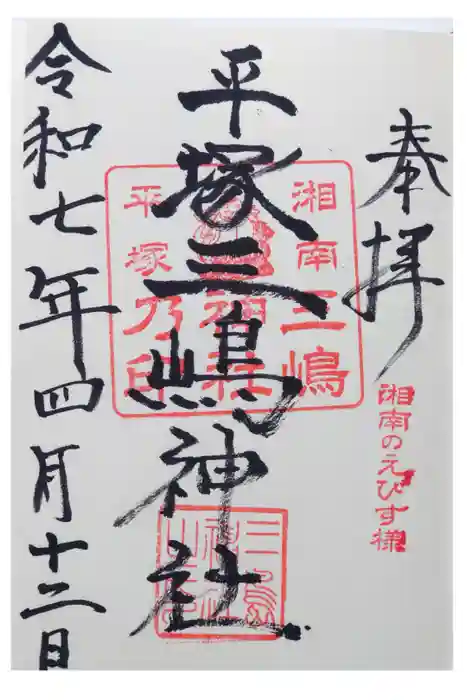 奉拝
湘南のえびす様
湘南三嶋
神社
平塚乃印
平塚三嶋神社
三島
神社
之印
令和七年四月十二日